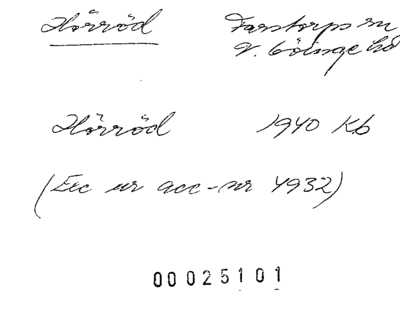 Hörröd Farstorps sn
V. Göinge hd
Hörröd 1940 Kb
(Exc ur acc-nr 4932)
00025101